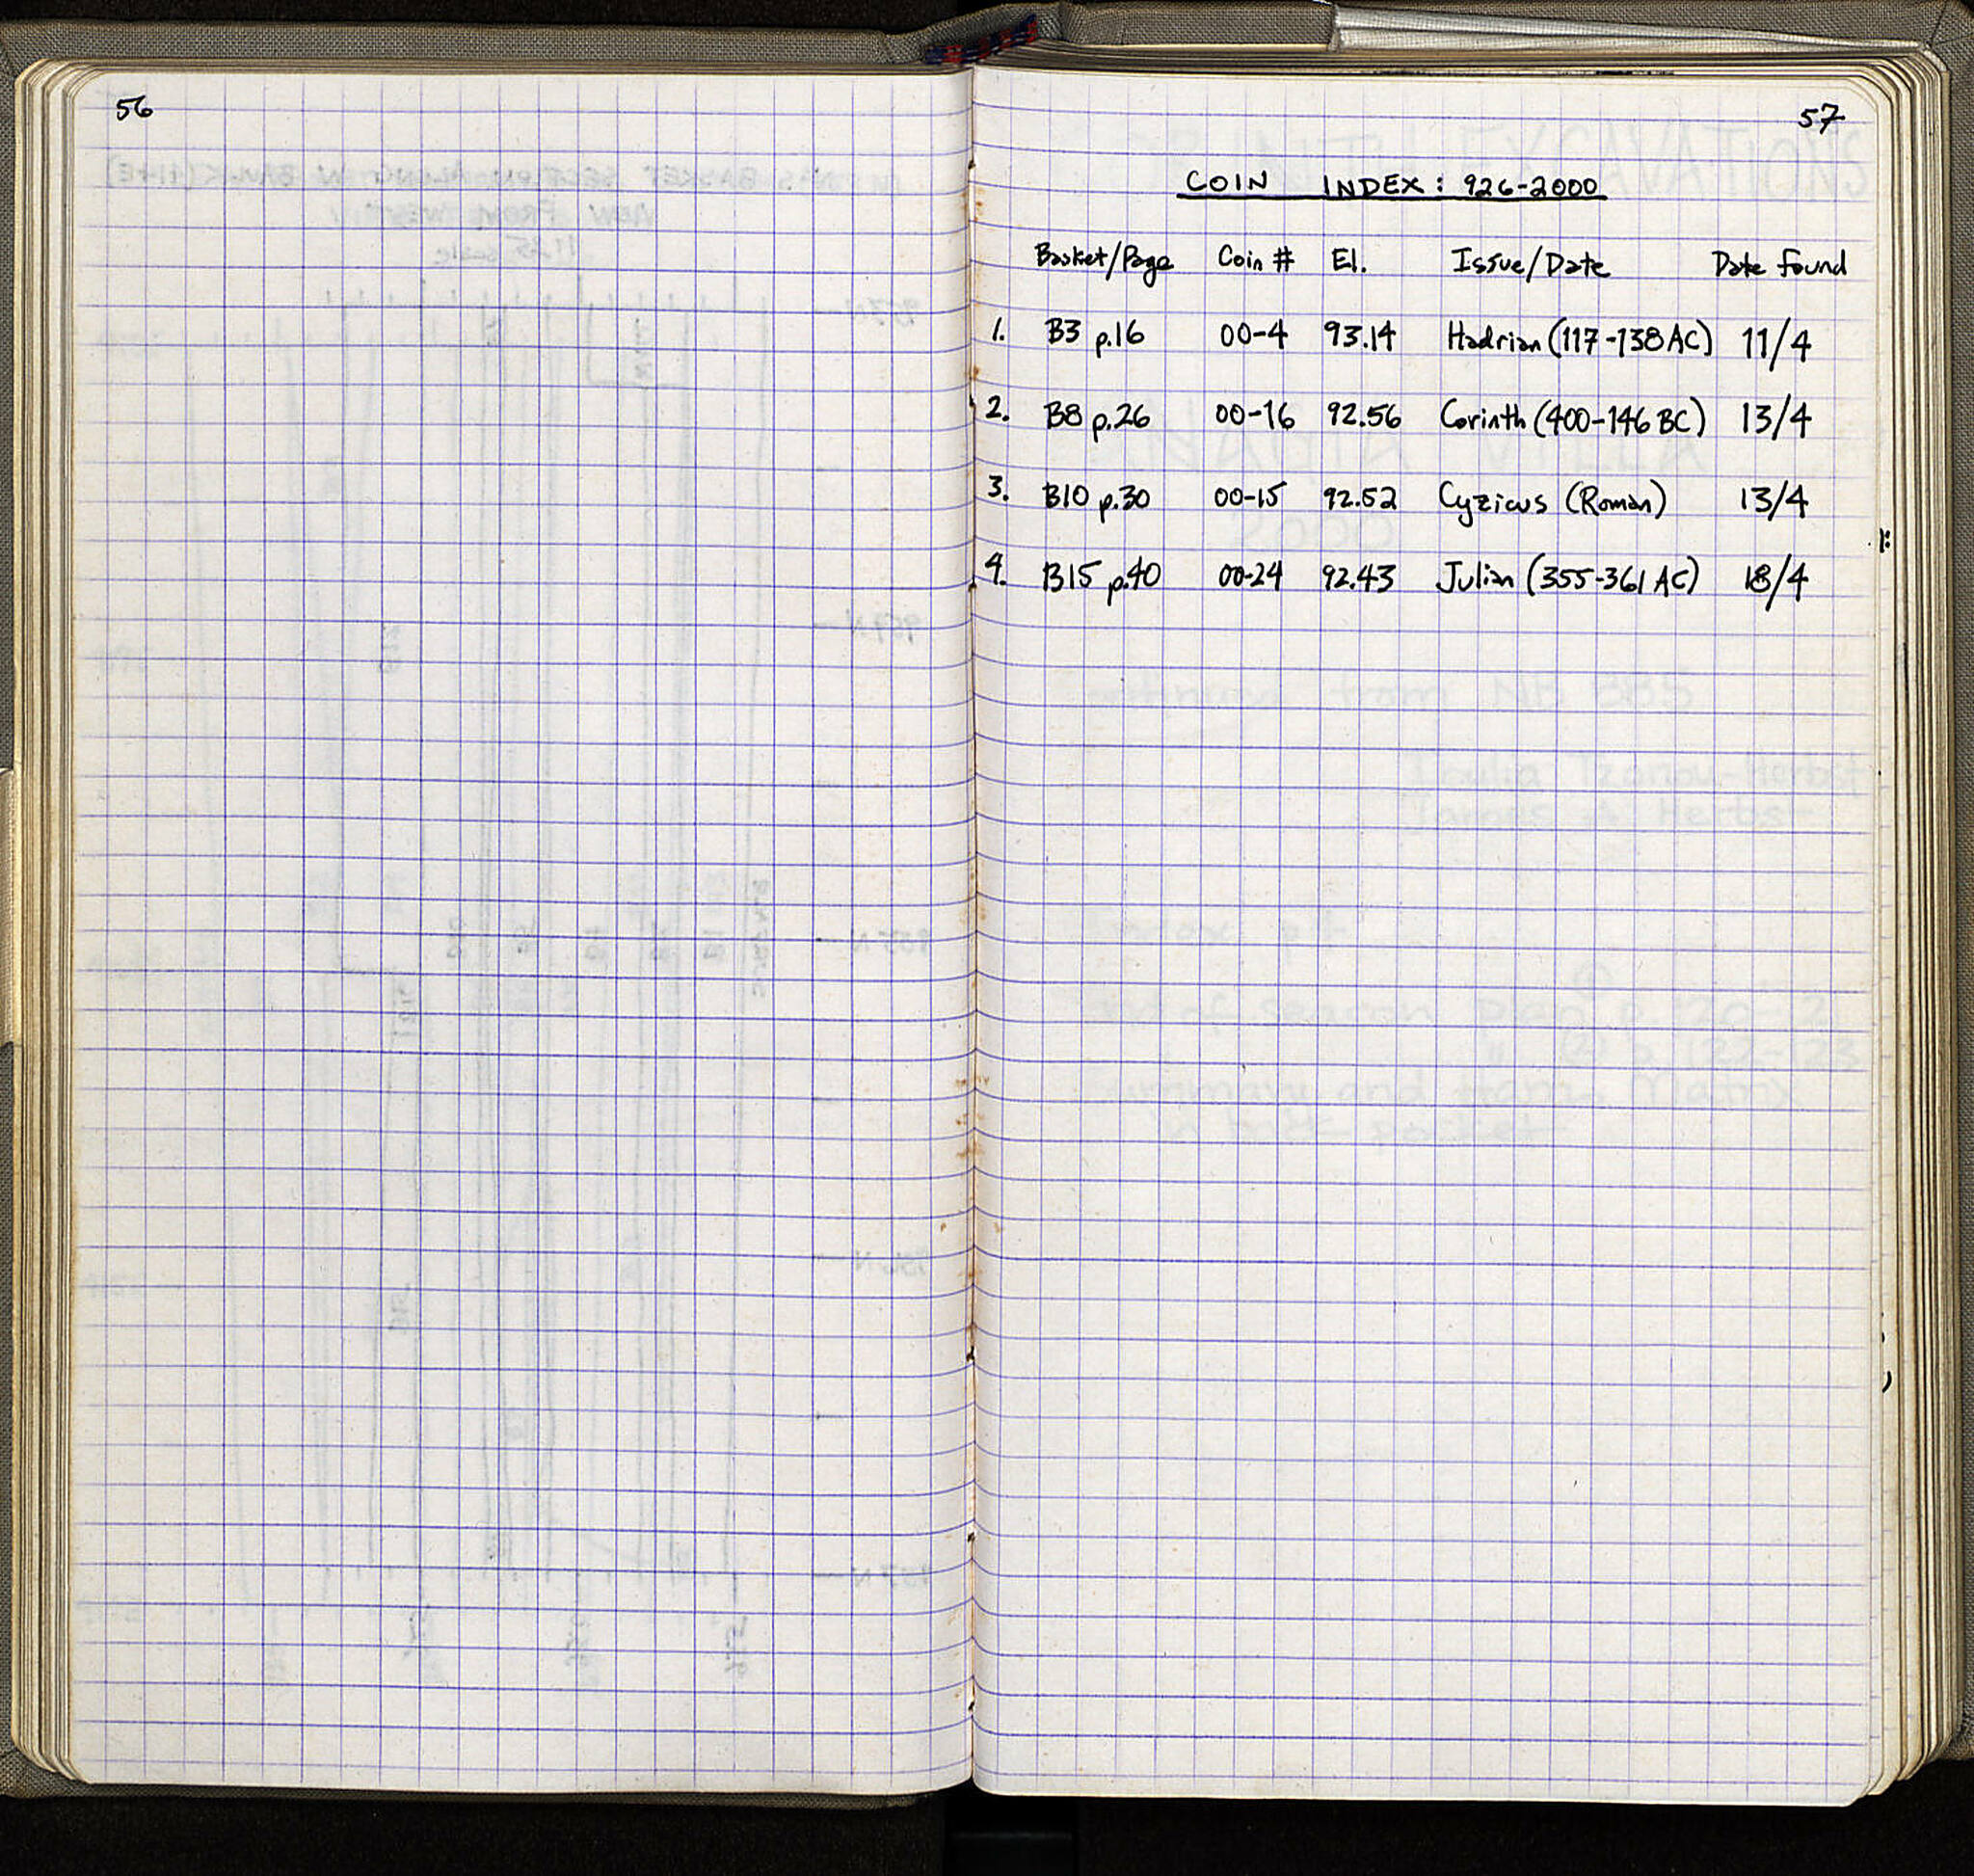 56
57
COIN INDEX: 926-2000
Basket/Page Coin # El. Issue/Date Date Found
1. B3 p.16 00-4 93.14 Hadrian (117-138 AC) 11/4
2. B8 p.26 00-16 92.56 Corinth (400-146 BC) 13/4
3. B10 p.30 00-15 92.52 Cyzicus (Roman) 13/4
4. B15 p.40 00-24 92.43 Julian (355-361 AC) 18/4